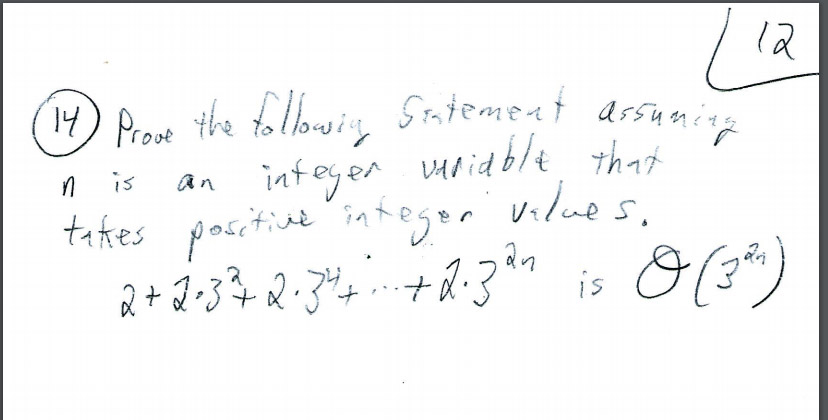 12
14 Prove the following Statement assuming
n is an integer variable that
takes positive integer values.
2 + 2·3² + 2·3⁴ + ... + 2·3²ⁿ is Θ(3²ⁿ)